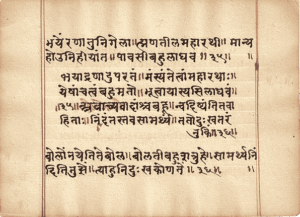 भयेंरणातुनिगेला॥म्हणतीलमहारथी॥ मान्य
होउनिहीयांत॥ पावसीबहुलाघव॥३५॥
भयाद्रणादुपरतं॥मंस्यंतेत्वांमहारथाः॥
येषांचत्वंबहुमतो॥भूत्वायास्यसिलाघवं॥
३५॥ अवाच्यवादांश्चबहून्॥वदिष्यंतितवा
हिताः॥निंदंतस्तवसामर्थ्यं॥ततोदुःखतरं
नुकिं॥३६॥
बोलोंनयेतितेबोल॥ बोलतीबहुशत्रुहे॥ सामर्थ्यनिं
दितितुझें॥ त्याहुनिदुःखकोणतें॥३६॥